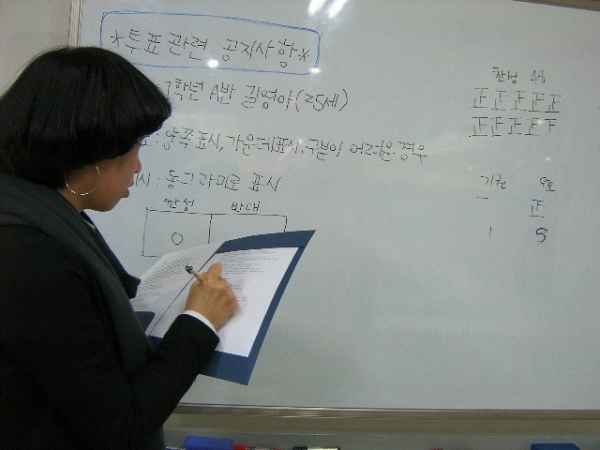 *투표 관련 공지사항*
학년 A반 길영아(25세)
: 양쪽표시, 가운데표시, 구분이 어려운 경우
시 : 동그라미로 표시
찬성 반대
○
찬성
正正正正正
正正正正
기권
一 正
1 5